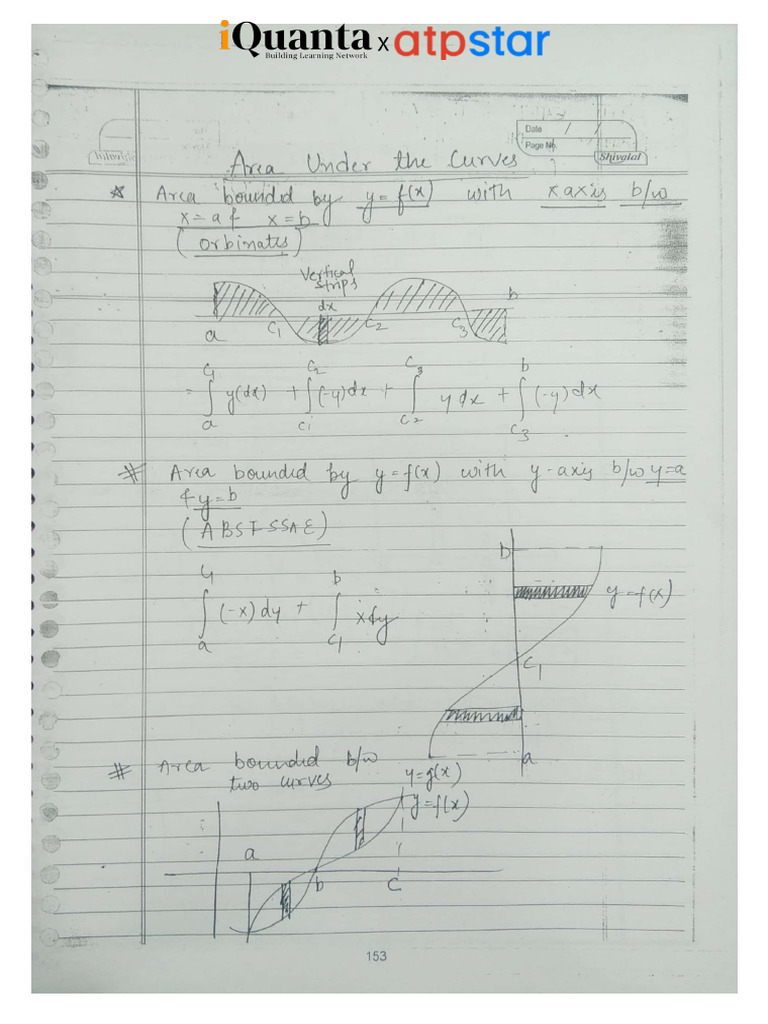 iQuanta x atpstar
Building Learning Network
Date / /
Page No.
Shivalal
Area Under the Curves
Area bounded by y = f(x) with x axis b/w
x = a & x = b
(Orbinates)
Vertical
strips
dx
b
a C1 C2 C3
= ∫_a^{C1} y(dx) + ∫_{C1}^{C2} (-y)dx + ∫_{C2}^{C3} y dx + ∫_{C3}^{b} (-y)dx
# Area bounded by y = f(x) with y-axis b/w y=a
& y=b
(ABSISSAE)
b
y = f(x)
∫_a^{C1} (-x)dy + ∫_{C1}^{b} x dy
C1
a
# Area bounded b/w
two curves
y = g(x)
y = f(x)
a
b C
153